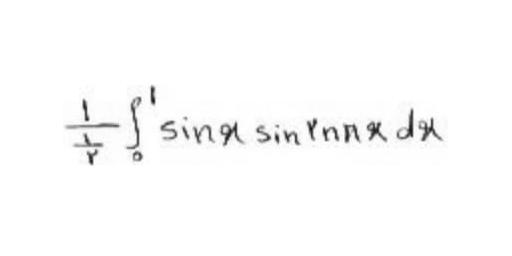 \frac{1}{\frac{1}{۲}} \int_{0}^{1} sinx sin ۲nπx dx